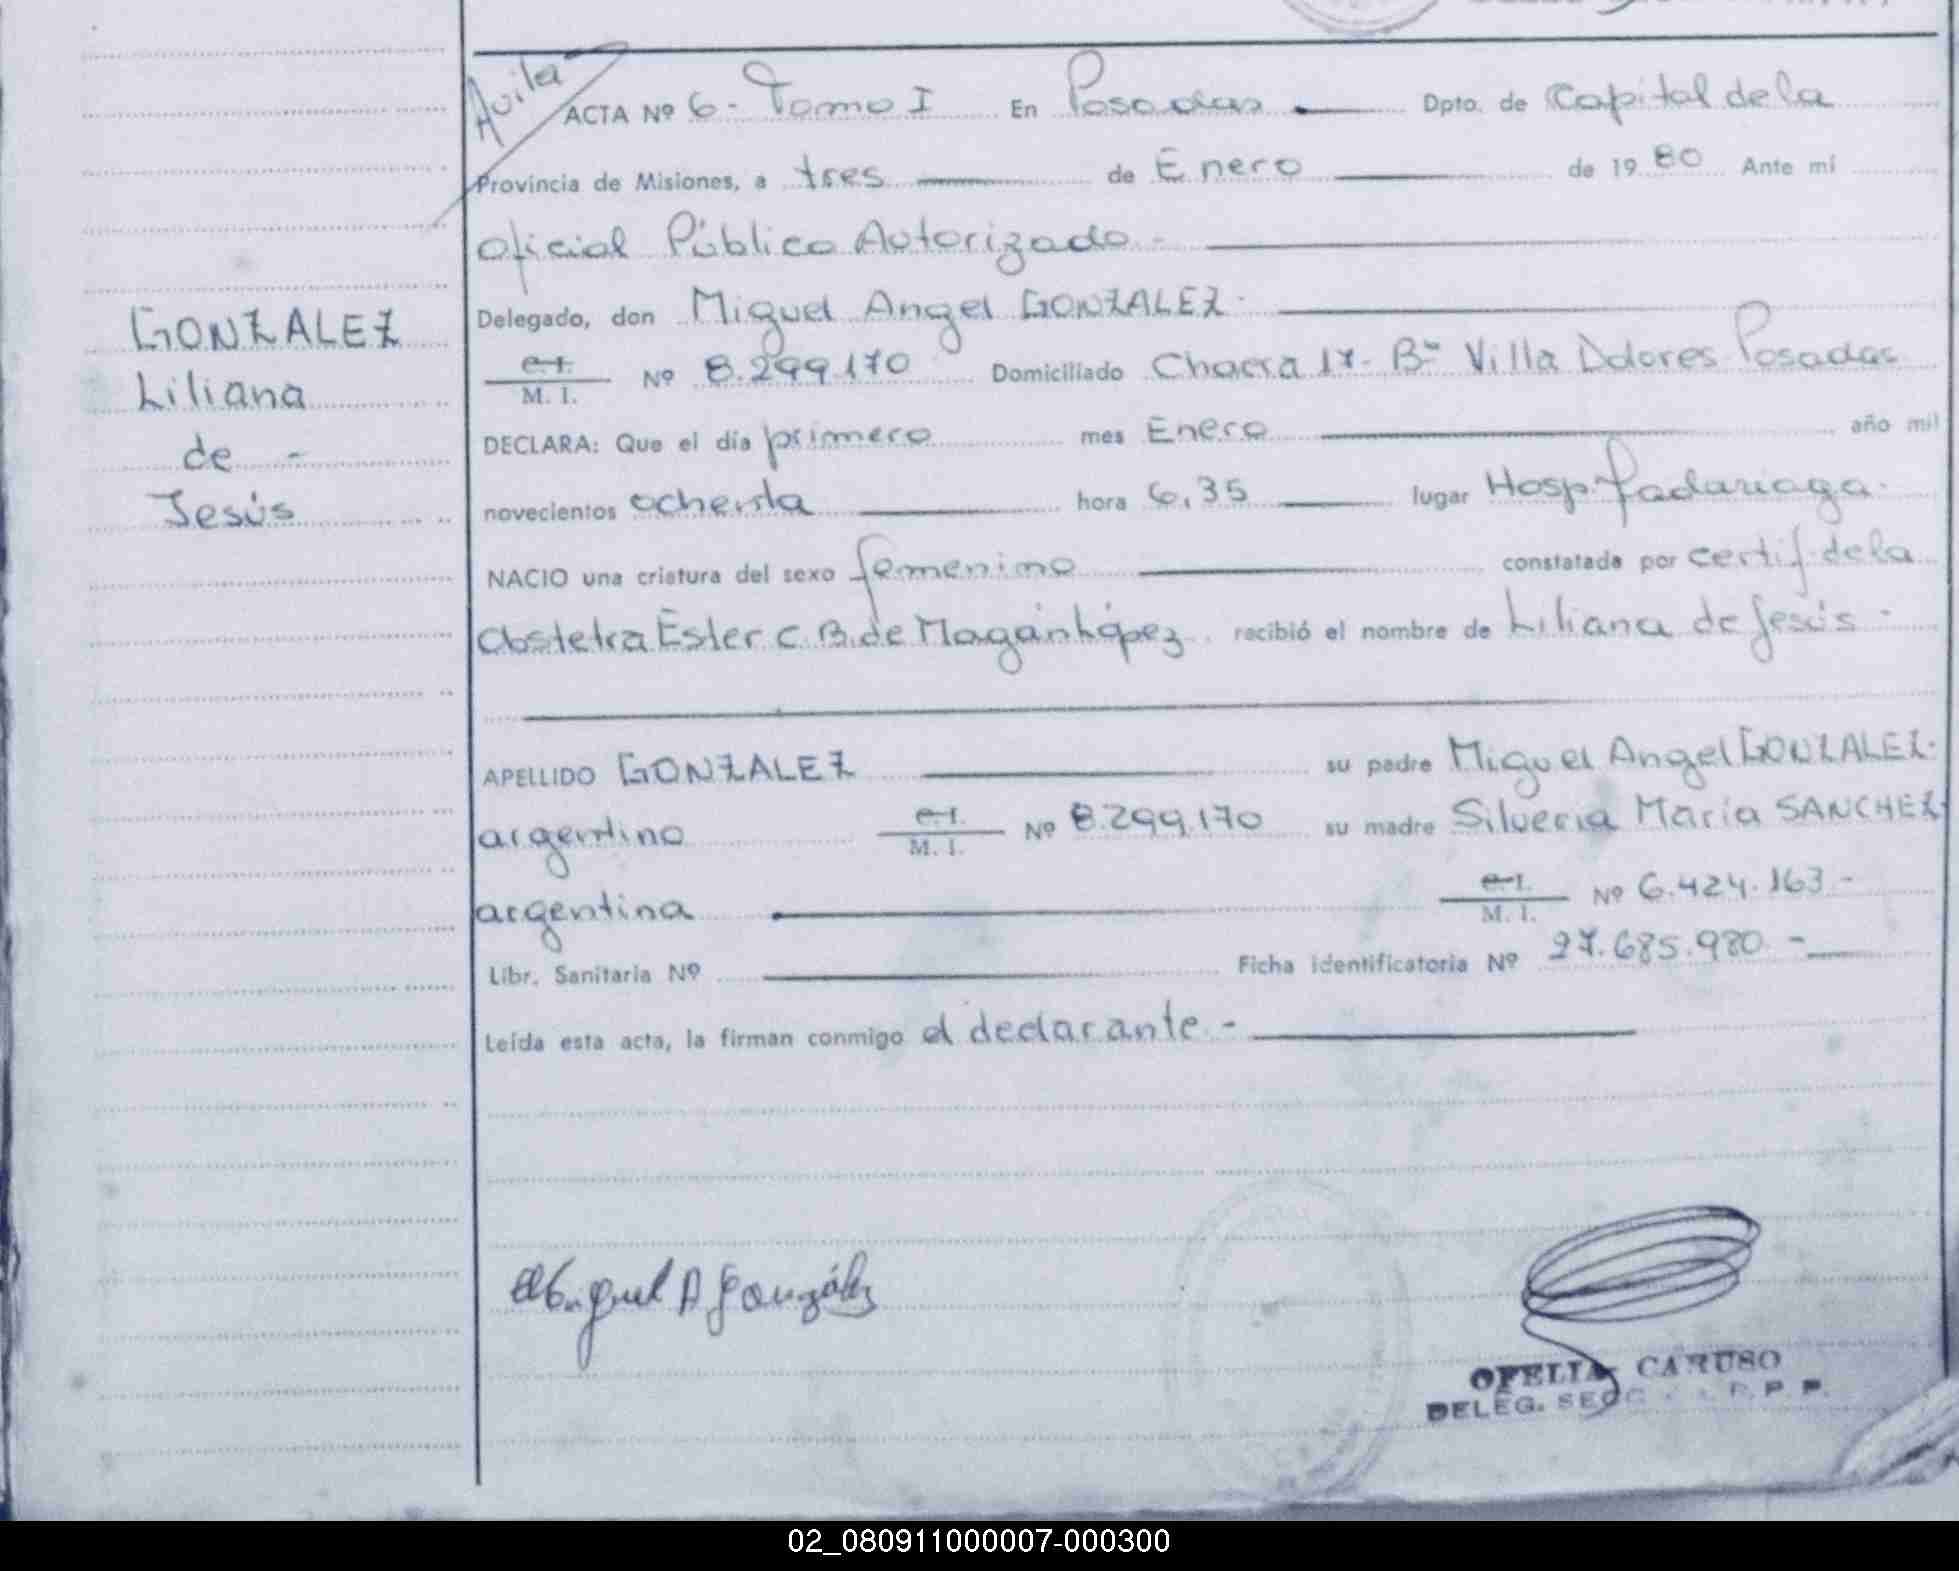 Avila
ACTA Nº 6 - Tomo I En Posadas Dpto. de Capital de la
Provincia de Misiones, a tres de Enero de 1980 Ante mí
Oficial Público Autorizado -
Delegado, don Miguel Angel GONZALEZ.
GONZALEZ
Liliana
de -
Jesús
C. I.
M. I. Nº 8.299.170 Domiciliado Chacra 17 - Bº Villa Dolores Posadas
DECLARA: Que el día primero mes Enero año mil
novecientos ochenta hora 6,35 lugar Hosp. Madariaga.
NACIO una criatura del sexo femenino constatada por certif. de la
Obstetra Ester C. B. de Magán López recibió el nombre de Liliana de Jesús -
APELLIDO GONZALEZ su padre Miguel Angel GONZALEZ.
argentino C. I.
M. I. Nº 8.299.170 su madre Silveria María SANCHEZ
argentina C. I.
M. I. Nº 6.424.163 -
Libr. Sanitaria Nº Ficha identificatoria Nº 27.685.980 -
Leída esta acta, la firman conmigo el declarante -
Miguel A González
OFELIA CARUSO
DELEG. SECC. R. P. P.
02_080911000007-000300